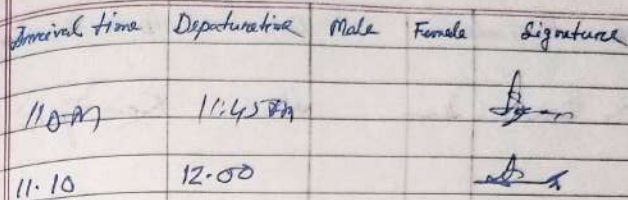 Arrival time Departuretime Male Female Signature
11 AM 11:45 AM
11.10 12.00